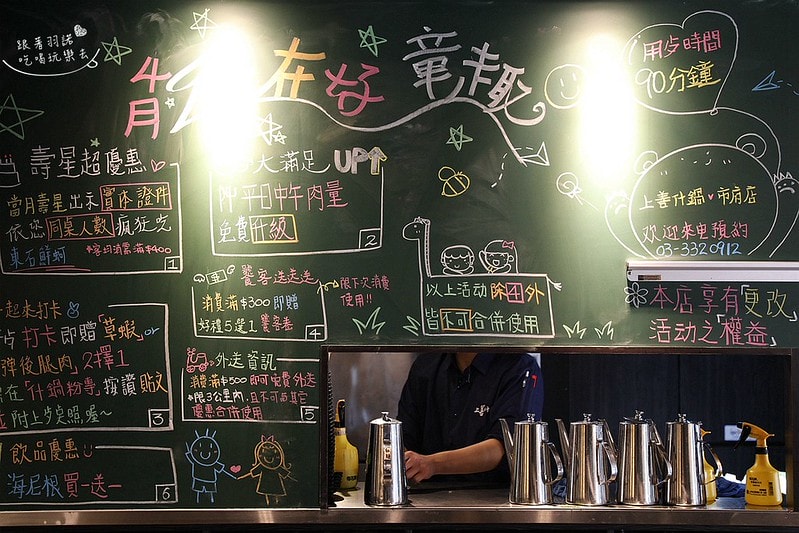 跟著羽諾
吃喝玩樂去
4月 在好童趣
用歺時間
90分鐘
壽星超優惠
當月壽星出示實体證件
依您同桌人數瘋狂送
東石鮮蚵 *客均消需滿$400
1
大滿足UP↑
平日中午肉量
免費升級
2
上善什鍋♥市府店
欢迎來电預約
03-3320912
饕客送送送
消費滿$300即贈
好禮5選1 饕客卷
4
限下次消費
使用!!
以上活动除④外
皆不可合併使用
本店享有「更改
活动之權益」
一起來打卡
打卡即贈「草蝦」or
彈後腿肉」2擇1
在「什鍋粉專」按讚貼文
並附上歺照喔~
3
外送資訊
消費滿$500即可免費外送
*限3公里內,且不可與其它
優惠合併使用
5
飲品優惠
海尼根買一送一
6